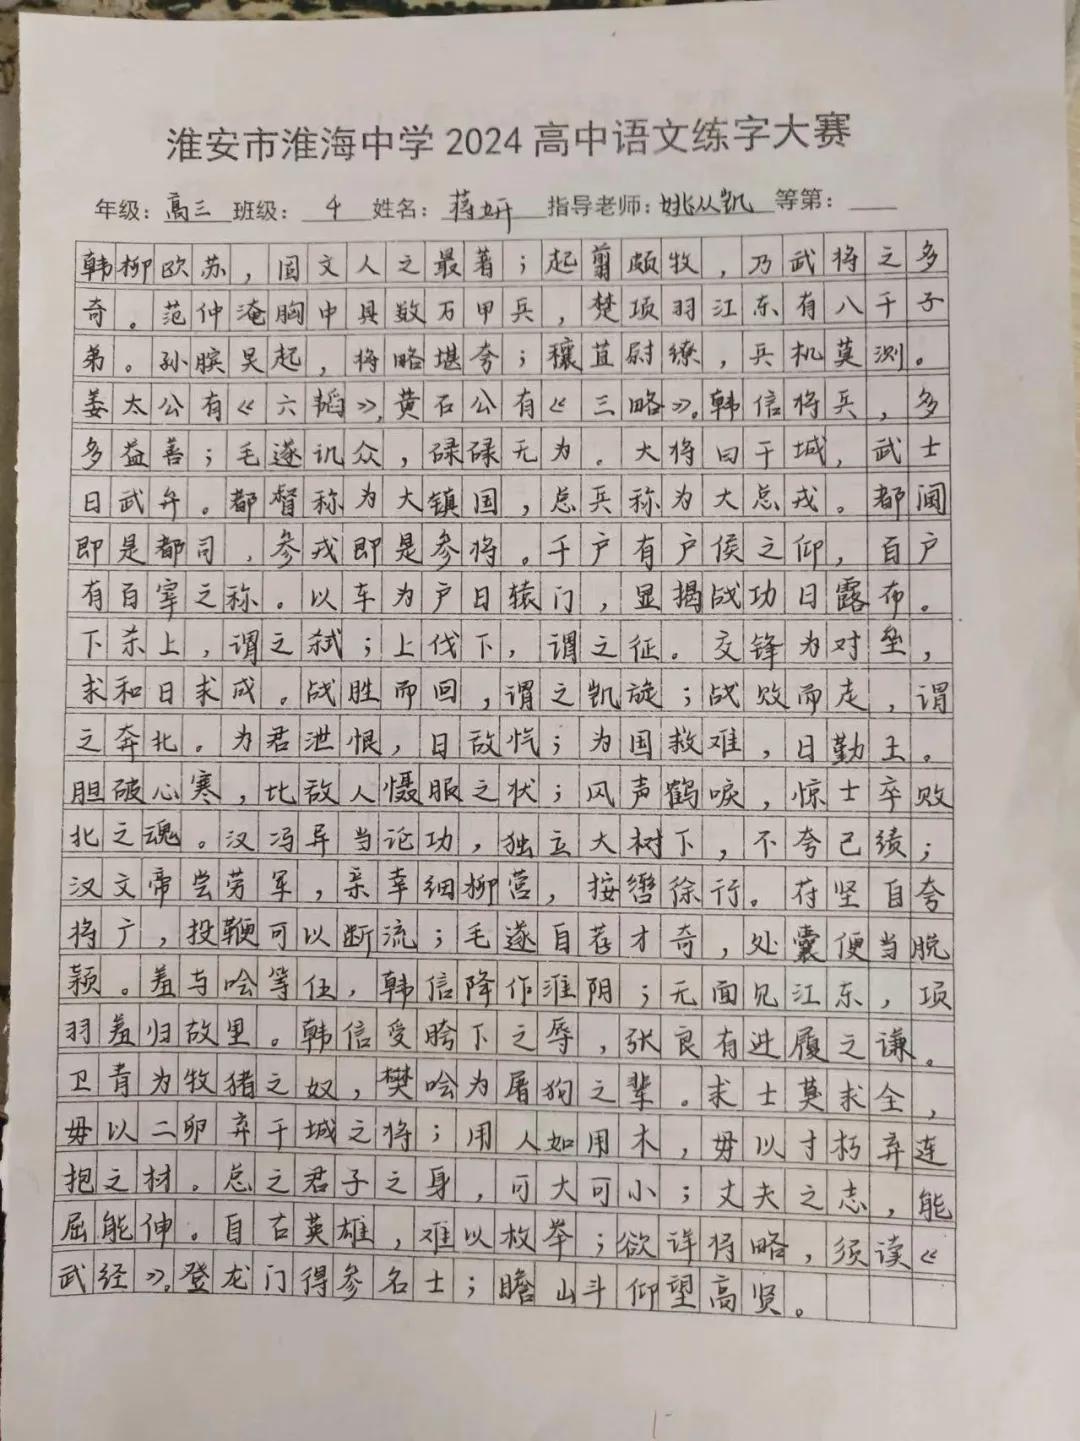 淮安市淮海中学2024高中语文练字大赛
年级：高三 班级：4 姓名：蒋妍 指导老师：姚从凯 等第：
韩柳欧苏，固文人之最著；起翦颇牧，乃武将之多
奇。范仲淹胸中具数万甲兵，楚项羽江东有八千子
弟。孙膑吴起，将略堪夸；穰苴尉缭，兵机莫测。
姜太公有《六韬》，黄石公有《三略》。韩信将兵，多
多益善；毛遂讥众，碌碌无为。大将曰干城，武士
曰武弁。都督称为大镇国，总兵称为大总戎。都阃
即是都司，参戎即是参将。千户有户侯之仰，百户
有百宰之称。以车为户曰辕门，显揭战功曰露布。
下杀上，谓之弑；上伐下，谓之征。交锋为对垒，
求和曰求成。战胜而回，谓之凯旋；战败而走，谓
之奔北。为君泄恨，曰敌忾；为国救难，曰勤王。
胆破心寒，比敌人慑服之状；风声鹤唳，惊士卒败
北之魂。汉冯异当论功，独立大树下，不夸己绩；
汉文帝尝劳军，亲幸细柳营，按辔徐行。苻坚自夸
将广，投鞭可以断流；毛遂自荐才奇，处囊便当脱
颖。羞与哙等伍，韩信降作淮阴；无面见江东，项
羽羞归故里。韩信受胯下之辱，张良有进履之谦。
卫青为牧猪之奴，樊哙为屠狗之辈。求士莫求全，
毋以二卵弃干城之将；用人如用木，毋以寸朽弃连
抱之材。总之君子之身，可大可小；丈夫之志，能
屈能伸。自古英雄，难以枚举；欲详将略，须读《
武经》。登龙门得参名士；瞻山斗仰望高贤。